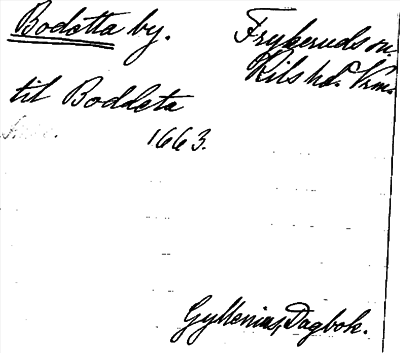 Bodetta by. Frykeruds sn.
Kils hd. Vrm.
til Boddeta
1663.
Gyllenius, Dagbok.